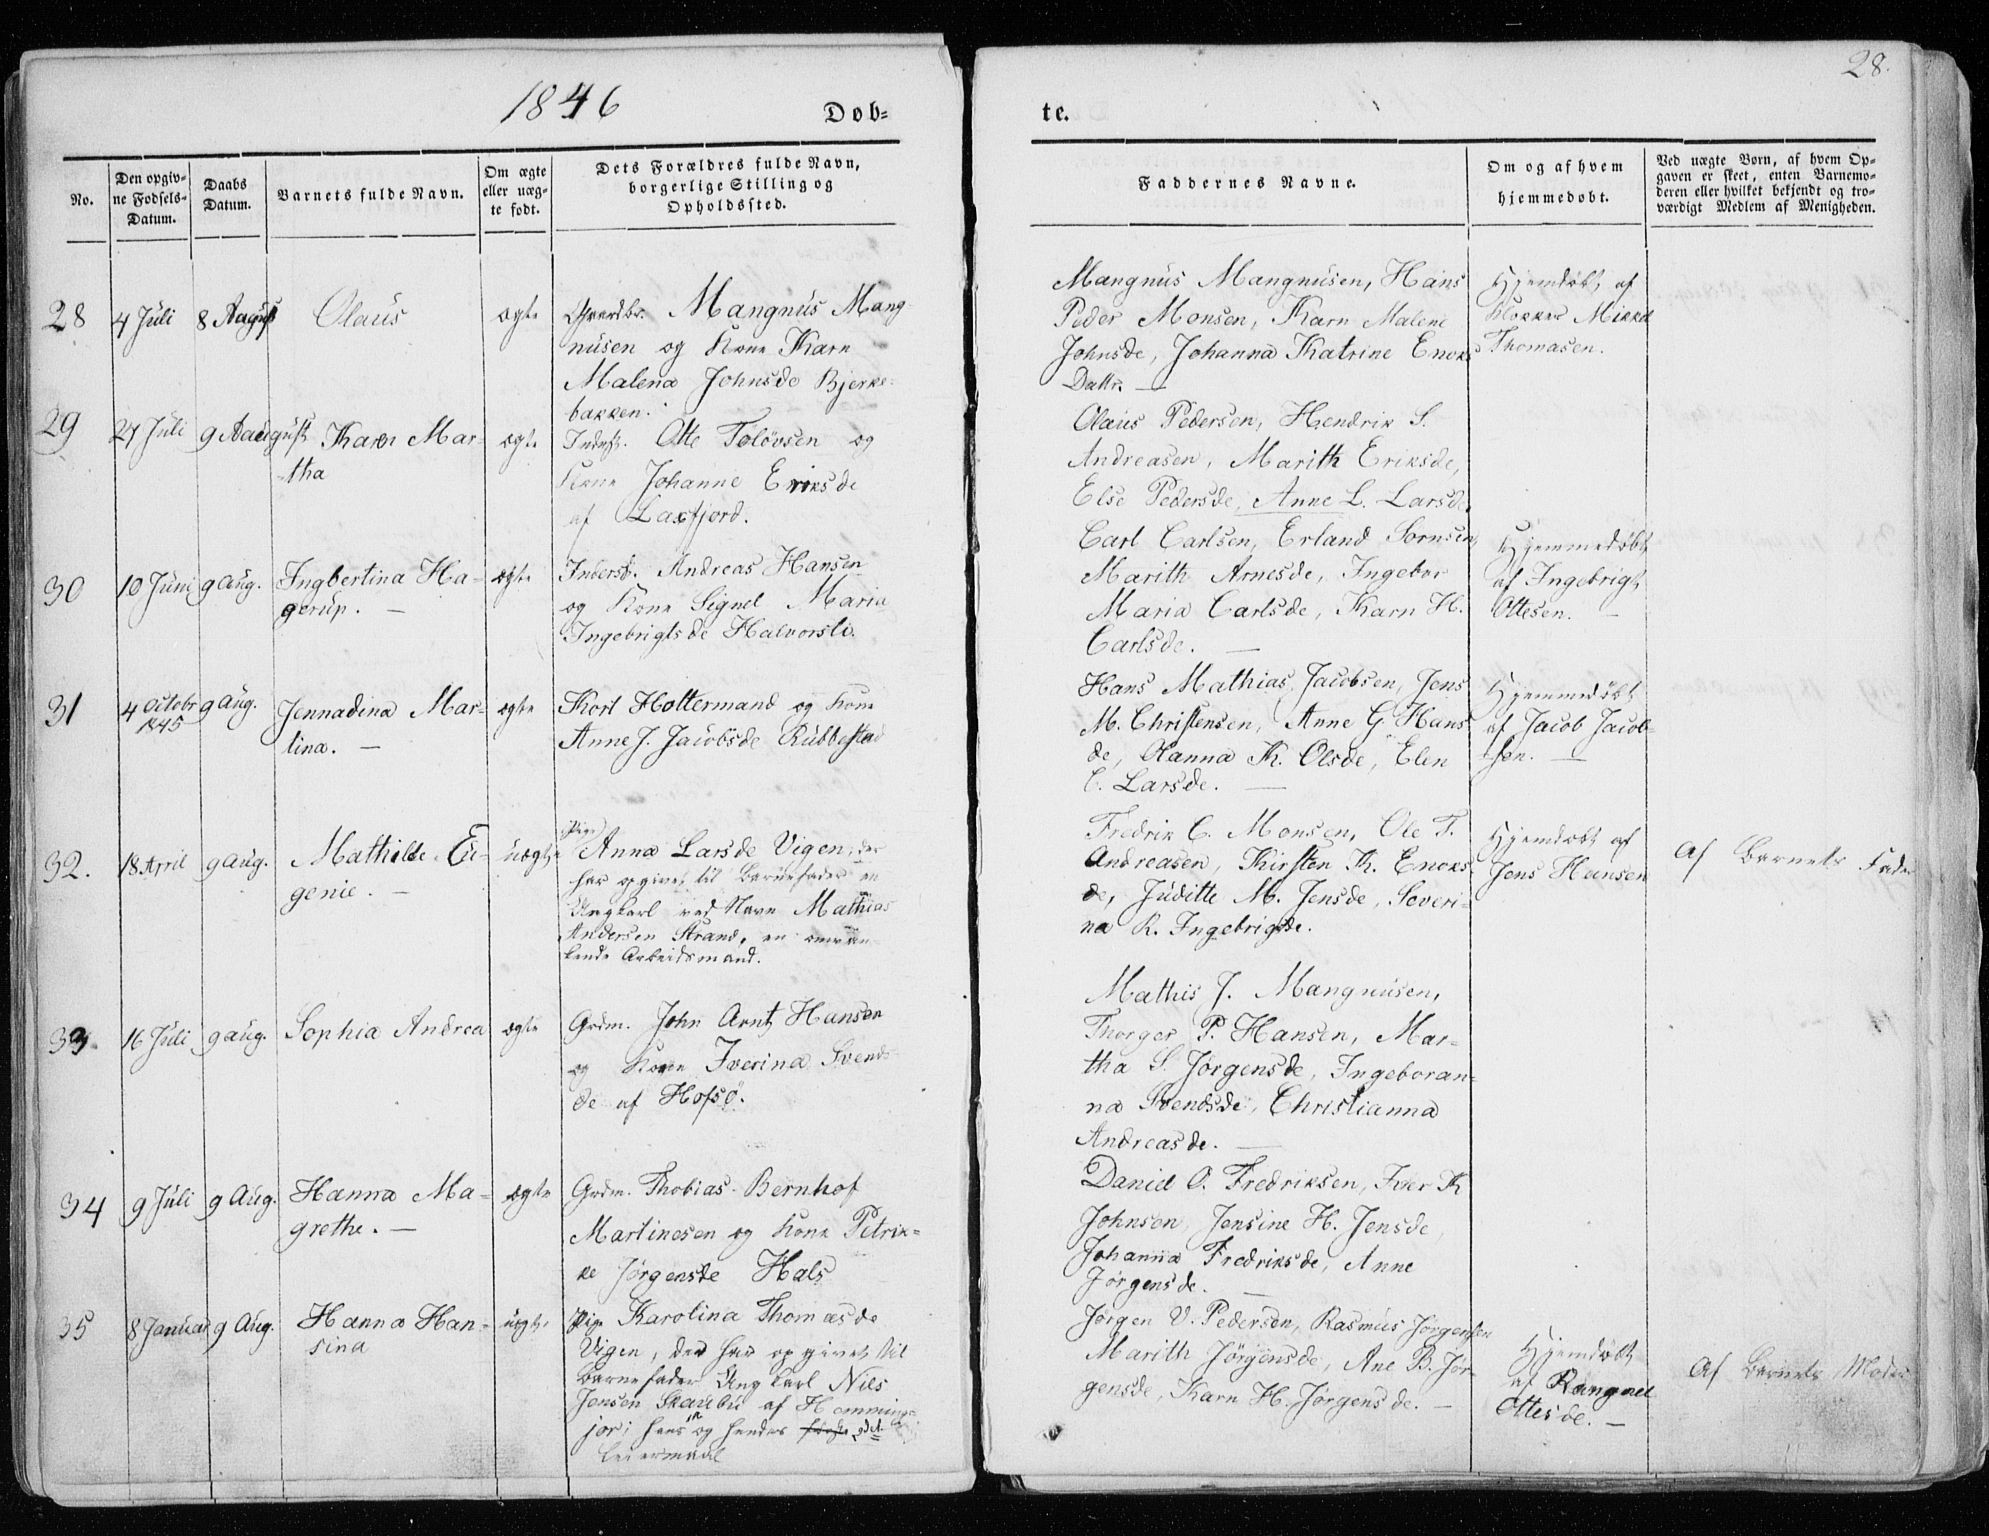 1846
Døb=
te.
28.
No.
Den opgiv-
ne Fødsels-
Datum.
Daabs
Datum.
Barnets fulde Navn.
Om ægte
eller uæg-
te født.
Dets Forældres fulde Navn,
borgerlige Stilling og
Opholdssted.
Faddernes Navne.
Om og af hvem
hjemmedøbt.
Ved uægte Børn, af hvem Op-
gaven er skeet, enten Barnemo-
deren eller hvilket bekjendt og tro-
værdigt Medlem af Menigheden.
28
4 Juli
8 August
Olaus
ægte
Mangnus Mang-
nusen og Kone Karn
Malena Johnsde Bjerke-
bakken.
Mangnus Mangnusen, Hans
Peder Monsen, Karn Malene
Johnsde, Johanna Katrine Enoks
Dattr. —
Hjemdøbt af
Klokker Mikkel
Thomasen.
29
27 Juli
9 Aaugust
Karn Mar-
tha
ægte
Inderst. Otte Toløvsen og
Kone Johanne Eriksde
af Laxfjord.
Olaus Pedersen, Hendrik S.
Andreasen, Marith Eriksde,
Else Pedersde, Anne L. Larsde.
30
10 Juni
9 aug.
Ingbertina Ha-
gerup. —
ægte
Inderst. Andreas Hansen
og Kone Signel Maria
Ingebrigtsde Halvorsli.
Carl Carlsen, Erland Sørnsen,
Marith Arnesde, Ingebor
Maria Carlsde, Karn H.
Carlsde. —
Hjemmedøbt
af Ingebrigt
Ottesen. —
31
4 Octobr
1845
9 aug.
Jennadina Mar-
tina. —
ægte
Kort Holtermand og Kone
Anne J. Jacobsde Rubbestad
Hans Mathias Jacobsen, Jens
M. Christensen, Anne G. Hans-
de, Olanna K. Olsde, Elen
C. Larsde. —
Hjemmedøbt
af Jacob Jacob-
sen. —
32.
18 April
9 aug.
Mathilde Eu-
genie. —
uægte
Pige
Anna Larsde Vigen, der
har opgivet til Barnefader en
Ungkarl ved Navn Mathias
Andersen Strand, en omvan-
kende Arbeidsmand.
Fredrik C. Monsen, Ole T.
Andreasen, Kirsten K. Enoks-
de, Juditte M. Jensde, Soveri-
na R. Ingebrigtsde.
Hjemdøbt af
Jens Hansen
Af Barnets Fader
33.
16 Juli
9 aug.
Sophia Andrea
ægte
Grdm. John Arnt Hansen
og Kone Iverina Svends-
de af Hofsø.
Mathis J. Mangnusen,
Thorger P. Hansen, Mar-
tha S. Jørgensde, Ingeboran-
na Svendsde, Christianna
Andreasde. —
34
9 Juli
9 Aug.
Hanna Ma-
grethe. —
ægte
Grdm. Thobias Bernhof
Martinesen og Kone Petrik-
ke Jørgensde Hals
Daniel O. Fredriksen, Iver K
Johnsen, Jensine H. Jensde,
Johanna Fredriksde, Anne
Jørgensde. —
35
8 Januar
9 Aug.
Hanna Han-
sina
uægte
Pige Karolina Thomasde
Vigen, der har opgivet til
Barnefader Ungkarl Nils
Jensen Skaubu af Hemming-
jor; hans og hendes
Leiermaal
Jørgen V. Pedersen, Rasmus Jørgensen
Marith Jørgensde, Ane B. Jør-
gensde, Karn H. Jørgensde. —
Hjemdøbt
af Rangnel
Ottesde. —
Af Barnets Moder